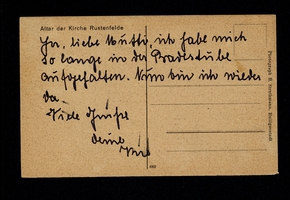 Alter der Kirche Rustenfelde
Ja, liebe Mutti, ich habe mich
so lange in der Badestube
aufgehalten. Nun bin ich wieder
da.
Viele Grüße
deine
Photograph R. Heiligenstadt